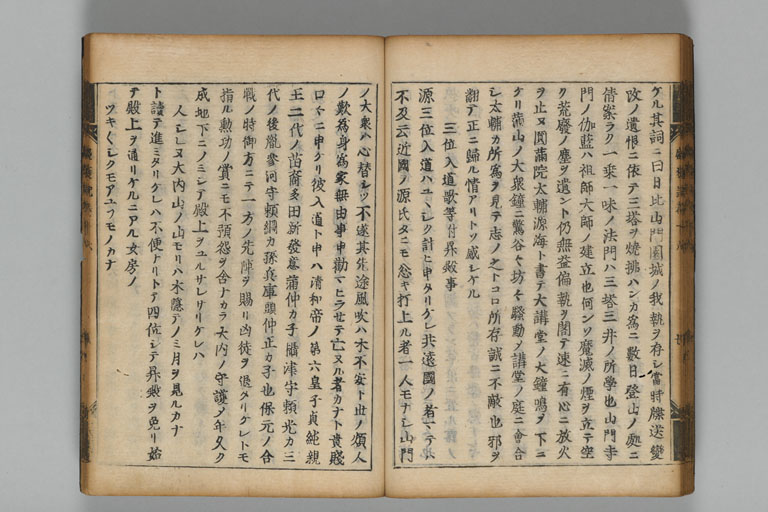 ケル其詞ニ曰日比山門園城ノ我執ヲ存シ當時牒送變
改ノ遺恨ニ依テ三塔ヲ燒拂ハンカ為ニ數日登山ノ處ニ
倩案ラク一乗一味ノ法門ハ三塔三井ノ所學也山門寺
門ノ伽藍ハ祖師大師ノ建立也何ソ魔滅ノ煙ヲ立テ空
ク荒廢ノ塵ヲ遺ント仍無益偏執ヲ閣テ速ニ有心ニ放火
ヲ止又圓滿院太輔源海ト書テ大講堂ノ大鐘鳴ヲ下ニ
ケリ滿山ノ大衆鐘ニ驚谷々坊々騒動メ講堂ノ庭ニ會合
シ太輔カ所為ヲ見テ志ノ之トコロ所存誠ニ不敵也邪ヲ
翻テ正ニ歸ル情アリトソ感シケル
三位入道歌等付昇殿事
源三位入道ハユヽシク計ヒ申タリケレ共遠國ノ者マテハ
不及云近國ノ源氏タニモ怱キ打上ル者一人モナシ山門
ノ大衆ハ心替シツ不遂其先途風吹ハ木不安ト世ノ煩人
ノ歎為身為家無由事申勸マヒラセテ亡ヌル者カナト貴賤
口々ニ申ケリ彼入道ト申ハ清和帝ノ第六皇子貞純親
王二代ノ苗裔多田新發意蒲仲カ子攝津守頼光カ三
代ノ後胤參河守頼綱カ孫兵庫頭仲正カ子也保元ノ合
戰ノ時御方ニテ一方ノ先陣ヲ賜リ凶徒ヲ退タリケレトモ
指ル勲功ノ賞ニモ不預怨ヲ含ナカラ大内ノ守護メ年久ク
成地下ニノミシテ殿上ヲユルサレサリケレハ
人シレヌ大内山ノ山モリハ木隱テノミ月ヲ見ルカナ
ト讀テ進ミタリケレハ不便ナリトテ四位シテ昇殿ヲ免リ始
テ殿上ヲ通リケルニアル女房ノ
ツキ〱シクモアユフモノカナ